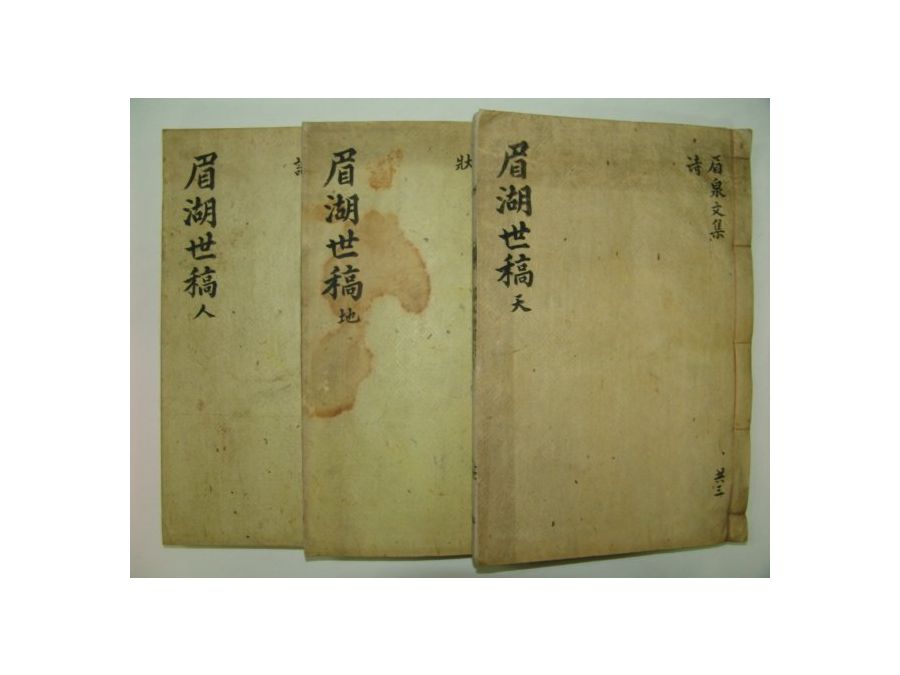 眉湖世稿 天
眉泉文集
诗
共三
眉湖世稿 地
狀
眉湖世稿 人